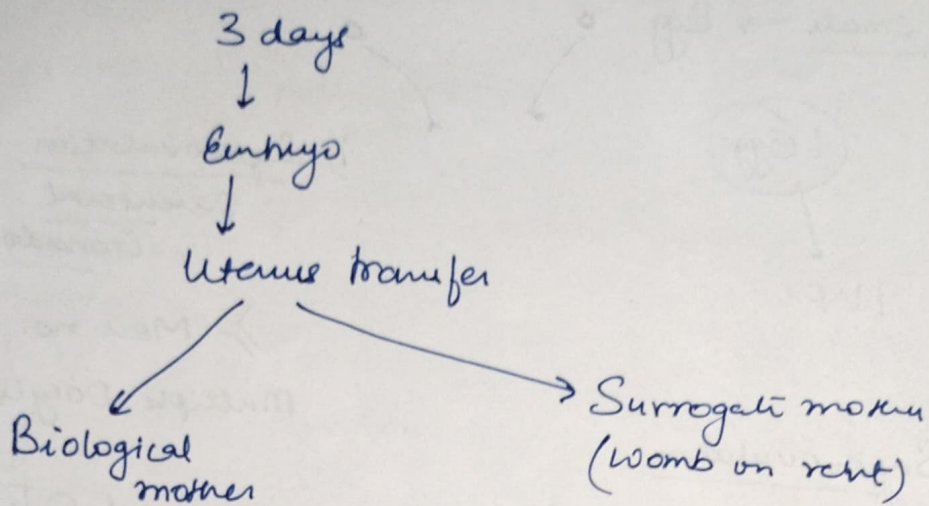 3 days
Embryo
Uterus transfer
Biological
mother
Surrogate mother
(womb on rent)